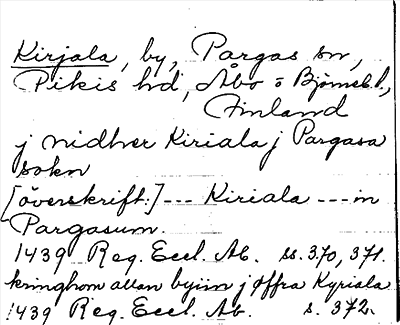 Kirjala, by, Pargas sn,
Pikis hd, Åbo o Björneb l.,
Finland
j nidher Kiriala j Pargasa
sokn
[överskrift:] --- Kiriala --- in
Pargasum.
1439 Reg. Eccl. Ab. ss. 370, 371.
kringhom allan byiin j øffra Kyriala
1439 Reg. Eccl. Ab. s. 372.